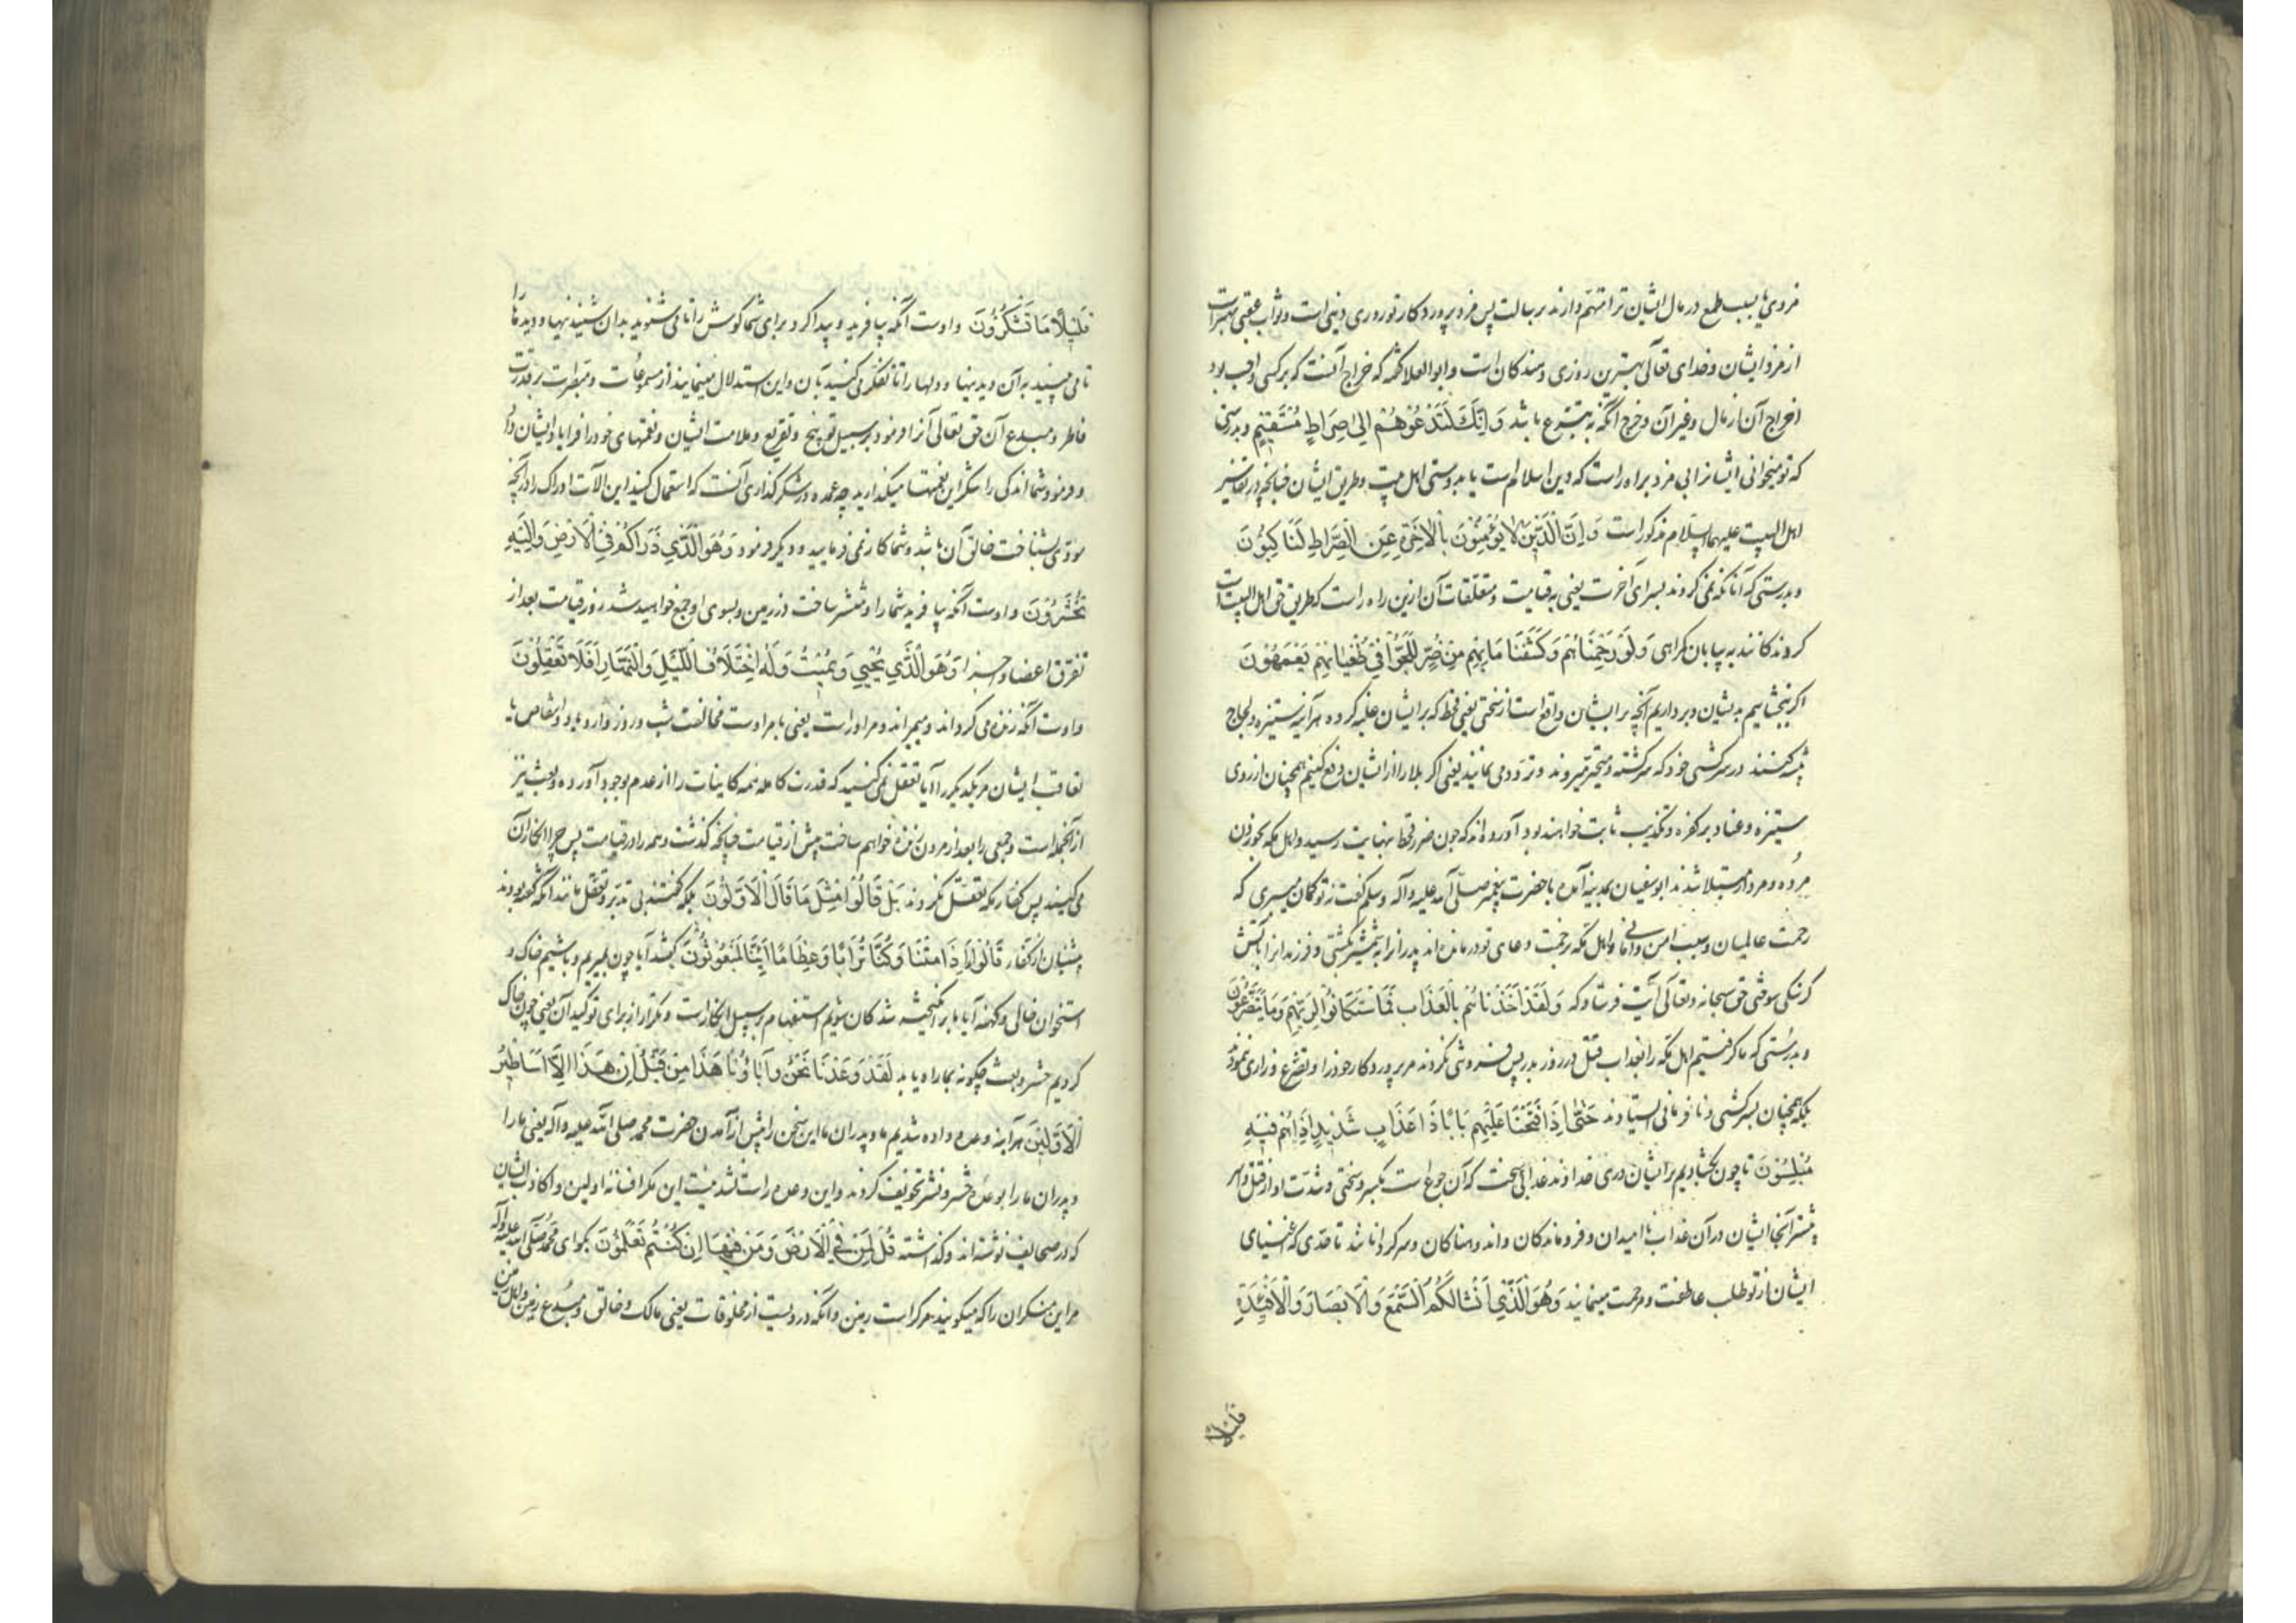 مزدی تا بسبب طمع در مال ایشان ترا متهم دارند بر رسالت پس مزد پروردکار تو روزی دنیی است و ثواب عقبی بهتر است
از مزد ایشان و خدای تعالی بهترین روزی دهندکان است و ابو العلا کفته که خراج آنست که بر کسی واجب بود
اخراج آن از مال و غیر آن و خرج آنکه به تبرع باشد وَاِنَّكَ لَتَدْعُوهُمْ اِلٰی صِرَاطٍ مُسْتَقِیمٍ و بدرستی
که تو میخوانی ایشانرا بی مزد براه راست که دین اسلام است یا بدوستی اهل بیت و طریق ایشان چنانچه در تفاسیر
اهل البیت علیهم السلام مذکور است وَ اِنَّ الَّذِینَ لَا یُؤْمِنُونَ بِالْاٰخِرَةِ عَنِ الصِّرَاطِ لَنَاکِبُونَ
و بدرستی که آنانکه نمی کروند بسرای آخرت یعنی به قیامت و متعلقات آن ازین راه راست که طریق حق اهل البیت است
کروندکانند به بیابان کمراهی وَلَوْ رَحِمْنَاهُمْ وَکَشَفْنَا مَا بِهِمْ مِنْ ضُرٍّ لَلَجُّوا فِی طُغْیَانِهِمْ یَعْمَهُونَ
اکر ببخشاییم بدیشان و برداریم آنچه بر ایشان واقع است از سختی یعنی قحط که بر ایشان غلبه کرده هر آینه ستیزه و لجاج
پیشه کنند در سرکشی خود که سرکشته و متحیر میروند و تردد می نمایند یعنی اکر بلا را از ایشان دفع کنیم همچنان از روی
ستیزه و عناد بر کفره و تکذیب ثابت خواهند بود آورده اند که چون ضرر قحط بنهایت رسید و اهل مکه بخوردن
مرده و مردار مبتلا شدند ابو سفیان بمدینه آمد با حضرت پیغمبر صلی الله علیه و آله و سلم کفت نه تو کمان میبری که
رحمت عالمیان و سبب امن و امانی و اهل مکه بزحمت دعای تو درمانده اند پدرانرا به شمشیر کشتی و فرزندانرا بآتش
کرسنکی سوختی حق سبحانه و تعالی آیت فرستاد که وَلَقَدْ اَخَذْنَاهُمْ بِالْعَذَابِ فَمَا اسْتَکَانُوا لِرَبِّهِمْ وَمَا یَتَضَرَّعُونَ
و بدرستی که ما کرفتیم اهل مکه را بعذاب قتل در روز بدر پس فروتنی نکردند مر پروردکار خود را و تضرع و زاری ننمودند
بلکه همچنان بسرکشی و نافرمانی ایستاوند حَتّٰی اِذَا فَتَحْنَا عَلَیْهِمْ بَابًا ذَا عَذَابٍ شَدِیدٍ اِذَا هُمْ فِیهِ
مُبْلِسُونَ تا چون بکشادیم بر ایشان دری خداوند عذابی سخت که آن جوع است بکبر و سختی و شدت او از قتل و اسر
بیشتر آنجا ایشان در آن عذاب ناامیدان و فروماندکان و اندوهناکان و سرکردانا شد تا حدی که اغنیای
ایشان از تو طلب عاطفت و مرحمت مینمایند وَهُوَ الَّذِی اَنْشَاَ لَکُمُ السَّمْعَ وَالْاَبْصَارَ وَالْاَفْئِدَةَ
قَلِیلًا
قَلِیلًا مَا تَشْکُرُونَ و اوست آنکه بیافرید و پیدا کرد برای شما کوش را تا می شنوید بدان شنیدنیها و دیدها را
تا می بینید به آن دیدنیها و دلها را تا تفکر می کنید بآن و این استدلال مینمایند از مسموعات و مبصرات بر قدرت
فاطر و مبدع آن حق تعالی آنرا فرمود بر سبیل توبیخ و تقریع و ملامت ایشان و نعمتهای خود را فرا یاد ایشان داد
و فرمود شما اندکی را شکر این نعمتها میکذارید چه عمده در شکرکذاری آنست که استعمال کنید این آلات ادراک را در آنچه
مؤدی بشناخت خالق آن باشد و شما کار نمی فرمایید و دیکر فرمود وَهُوَ الَّذِی ذَرَاَکُمْ فِی الْاَرْضِ وَاِلَیْهِ
تُحْشَرُونَ و اوست آنکه بیافرید شما را و منتشر ساخت در زمین و بسوی او جمع خواهید شد روز قیامت بعد از
تفرق اعضا و اجزا وَهُوَ الَّذِی یُحْیِی وَیُمِیتُ وَلَهُ اخْتِلَافُ اللَّیْلِ وَالنَّهَارِ اَفَلَا تَعْقِلُونَ
و اوست آنکه زنده می کرداند و میمیراند و مر او راست یعنی بامر اوست مخالفت شب و روز و ازدیاد و انتقاص یا
تعاقب ایشان مر یکدیکر را آیا تعقل نمی کنید که قدرت کامله همه کاینات را از عدم بوجود آورده و بعث نیز
از آنجمله است و جمعی را بعد از مردن زنده خواهیم ساخت پیش از قیامت چنانچه کذشت و همه را در قیامت پس چرا انکار آن
می کنید پس کفار مکه تعقل نکردند بَلْ قَالُوا مِثْلَ مَا قَالَ الْاَوَّلُونَ بلکه کفتند بی تدبر و تعقل مانند آنکه کفته بودند
پیشینیان از کفار قَالُوا اَاِذَا مِتْنَا وَکُنَّا تُرَابًا وَعِظَامًا اَاِنَّا لَمَبْعُوثُونَ کفتند آیا چون بمیریم و باشیم خاک و
استخوان خالی و کهنه آیا ما بر انکیخته شدکان شویم استفهام بر سبیل انکار است و تکرار از برای توکید آن یعنی چون خاک
کردیم حشر و بعث چکونه بما راه یابد لَقَدْ وُعِدْنَا نَحْنُ وَاٰبَاؤُنَا هٰذَا مِنْ قَبْلُ اِنْ هٰذَا اِلَّا اَسَاطِیرُ
الْاَوَّلِینَ هر آینه وعده داده شدیم ما و پدران ما این سخن را پیش از آمدن حضرت محمد صلی الله علیه و آله یعنی ما را
و پدران ما را بوعده حشر و نشر تخویف کردند و این وعده راست نشد نیست این مکر افسانه اولین و اکاذیب ایشان
که در صحایف نوشته اند و کذاشته قُلْ لِمَنِ الْاَرْضُ وَمَنْ فِیهَا اِنْ کُنْتُمْ تَعْلَمُونَ بکو ای محمد صلی الله علیه و آله
مر این منکران را که میکویند مر کراست زمین و آنکه در ویست از مخلوقات یعنی مالک و خالق و مبدع زمین و اهل زمین